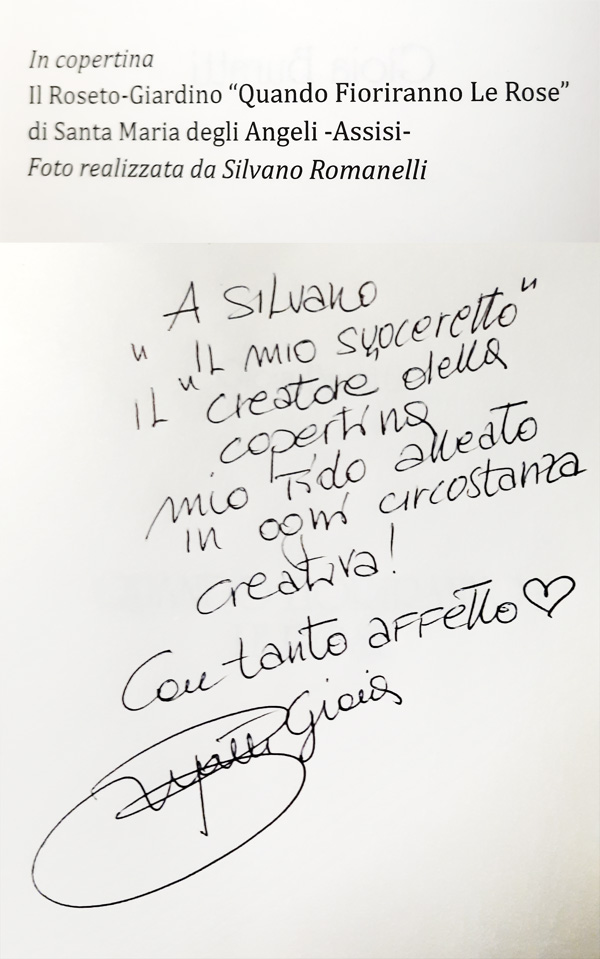 In copertina
Il Roseto-Giardino “Quando Fioriranno Le Rose”
di Santa Maria degli Angeli -Assisi-
Foto realizzata da Silvano Romanelli
A SILVANO
" IL MIO suoceretto"
IL "creatore della
copertina
mio fido alleato
in ogni circostanza
creativa!
Con tanto affetto ♡
Gioia